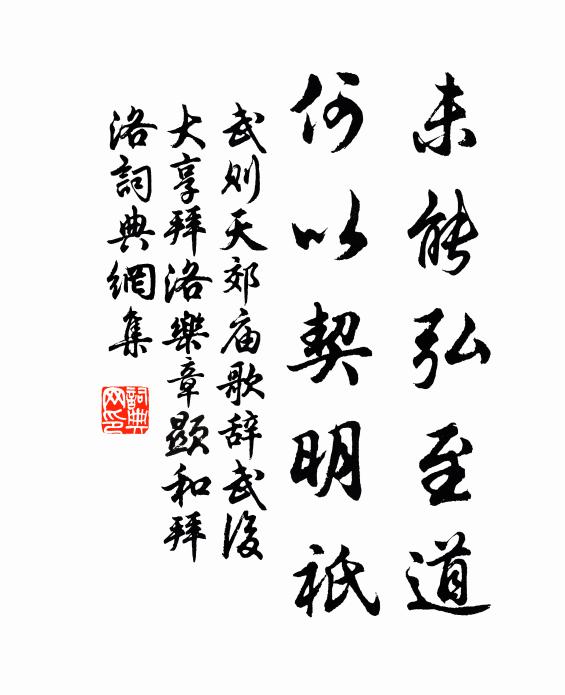 未能弘至道
何以契明祇
武则天郊庙歌辞武後
大享拜洛樂章顯和拜
洛詞典網集
詞典
网印